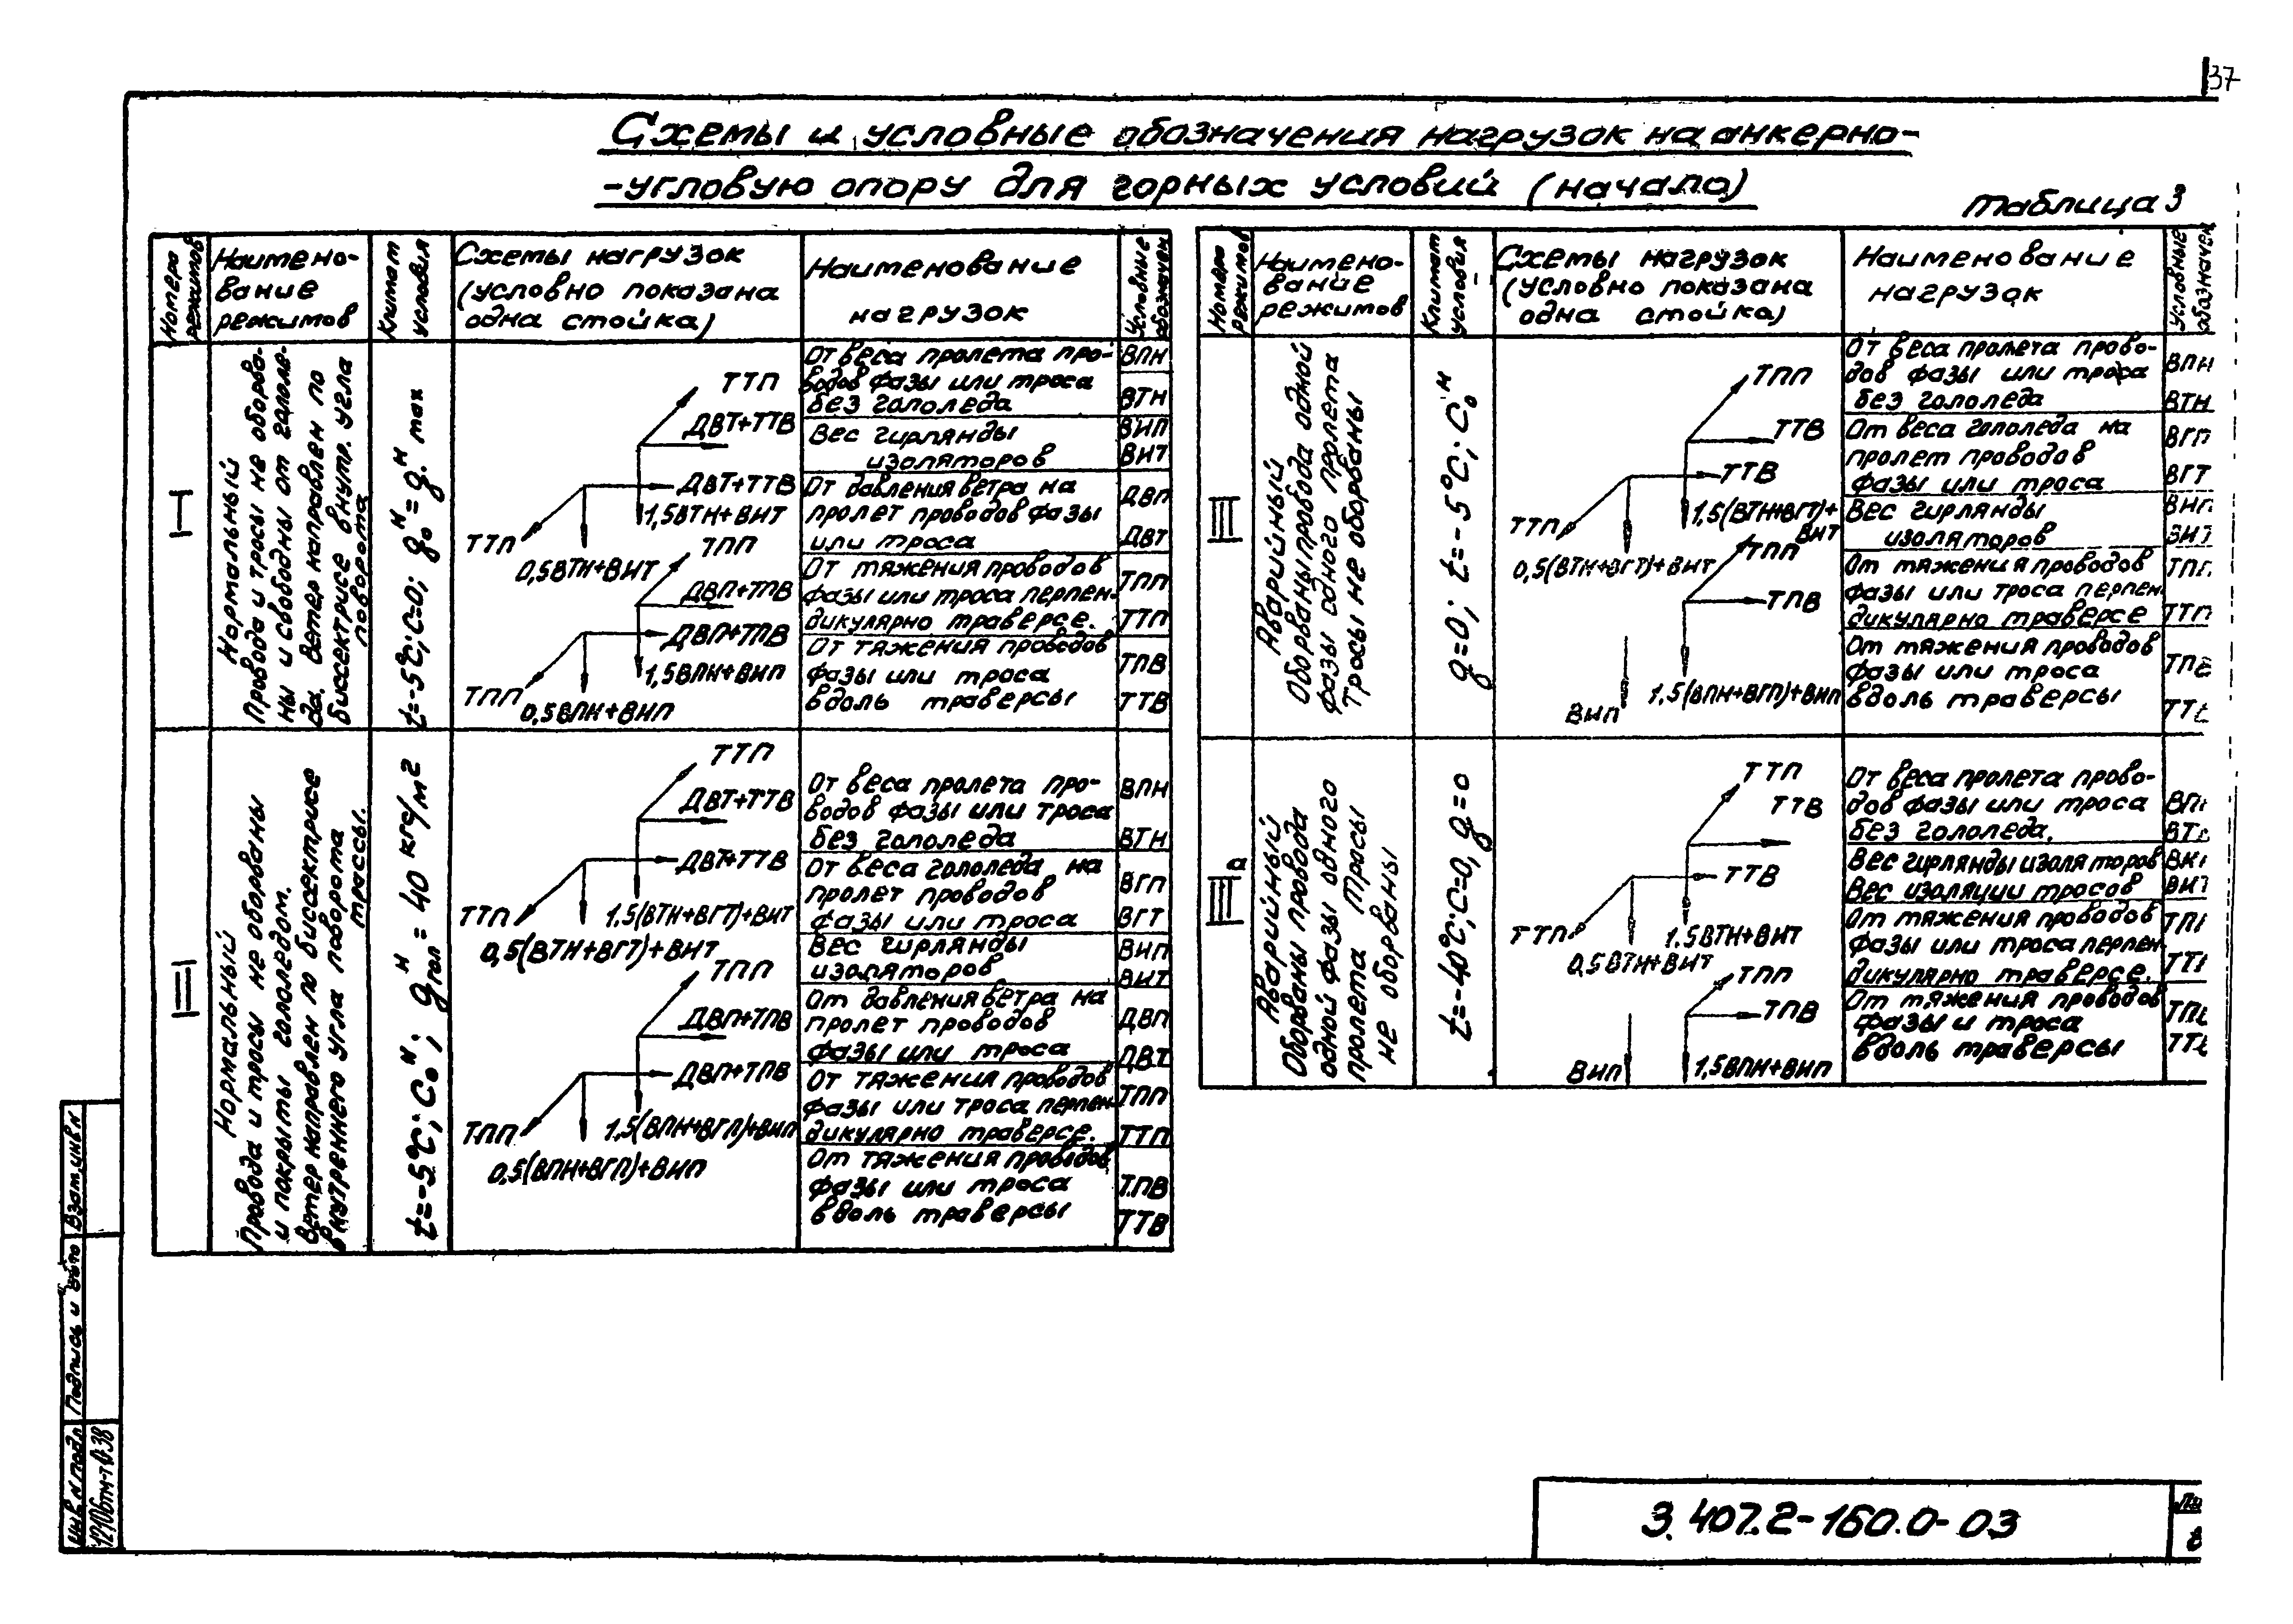 37
Схемы и условные обозначения нагрузок на анкерно-
-угловую опору для горных условий (начало)
Таблица 3
Номера режимов
Наимено-
вание
режимов
Климат условия
Схемы нагрузок
(условно показана
одна стойка)
Наименование
нагрузок
Условные обозначен
I
Нормальный
Провода и тросы не оборва-
ны и свободны от гололе-
да. Ветер направлен по
биссектрисе внутр. угла
поворота
t=-5°С; С=0; g₀ᴴ=gᴴmax
ТТП
ДВТ+ТТВ
ДВТ+ТТВ
1,5ВТН+ВИТ
ТТП
0,5ВТН+ВИТ
ТПП
ДВП+ТПВ
ДВП+ТПВ
1,5ВПН+ВИП
ТПП
0,5ВПН+ВИП
От веса пролета про-
водов фазы или троса
без гололеда
ВПН
ВТН
Вес гирлянды
изоляторов
ВИП
ВИТ
От давления ветра на
пролет проводов фазы
или троса
ДВП
ДВТ
От тяжения проводов
фазы или троса перпен-
дикулярно траверсе.
ТПП
ТТП
От тяжения проводов
фазы или троса
вдоль траверсы
ТПВ
ТТВ
II
Нормальный
Провода и тросы не оборваны
и покрыты гололедом.
Ветер направлен по биссектрисе
внутреннего угла поворота
трассы.
t=-5°С; С₀ᴴ; gᴴгол = 40 кгс/м²
ТТП
ДВТ+ТТВ
ДВТ+ТТВ
ТТП
1,5(ВТН+ВГТ)+ВИТ
0,5(ВТН+ВГТ)+ВИТ
ТПП
ДВП+ТПВ
ДВП+ТПВ
ТПП
1,5(ВПН+ВГП)+ВИП
0,5(ВПН+ВГП)+ВИП
От веса пролета про-
водов фазы или троса
без гололеда
ВПН
ВТН
От веса гололеда на
пролет проводов
фазы или троса
ВГП
ВГТ
Вес гирлянды
изоляторов
ВИП
ВИТ
От давления ветра на
пролет проводов
фазы или троса
ДВП
ДВТ
От тяжения проводов
фазы или троса перпен-
дикулярно траверсе.
ТПП
ТТП
От тяжения проводов
фазы или троса
вдоль траверсы
ТПВ
ТТВ
Номера режимов
Наимено-
вание
режимов
Климат условия
Схемы нагрузок
(условно показана
одна стойка)
Наименование
нагрузок
Условные обозначен
III
Аварийный
Оборваны провода одной
фазы одного пролета
Тросы не оборваны
g=0; t=-5°С; С₀ᴴ
ТПП
ТТВ
ТТВ
ТТП
1,5(ВТН+ВГТ)+
ВИТ
0,5(ВТН+ВГТ)+ВИТ
ТПП
ТПВ
ВИП
1,5(ВПН+ВГП)+ВИП
От веса пролета прово-
дов фазы или троса
без гололеда
ВПН
ВТН
От веса гололеда на
пролет проводов
фазы или троса
ВГП
ВГТ
Вес гирлянды
изоляторов
От тяжения проводов
фазы или троса перпен
дикулярно траверсе
ТПП
ТТП
От тяжения проводов
фазы или троса
вдоль траверсы
ТПВ
III а
Аварийный
Оборваны провода
одной фазы одного
пролета Тросы
не оборваны
t=-40°С; С=0, g=0
ТТП
ТТВ
ТТВ
ТТП
1.5ВТН+ВИТ
0,5ВТН+ВИТ
ТПП
ТПВ
ВИП
1,5ВПН+ВИП
От веса пролета прово-
дов фазы или троса
без гололеда.
Вес гирлянды изоляторов
Вес изоляции тросов
ВИТ
От тяжения проводов
фазы или троса перпен
дикулярно траверсе.
От тяжения проводов
фазы и троса
вдоль траверсы
Инв N подл Подпись и дата Взам.инв.N
12106тм-т0.38
3.407.2-160.0-03
8